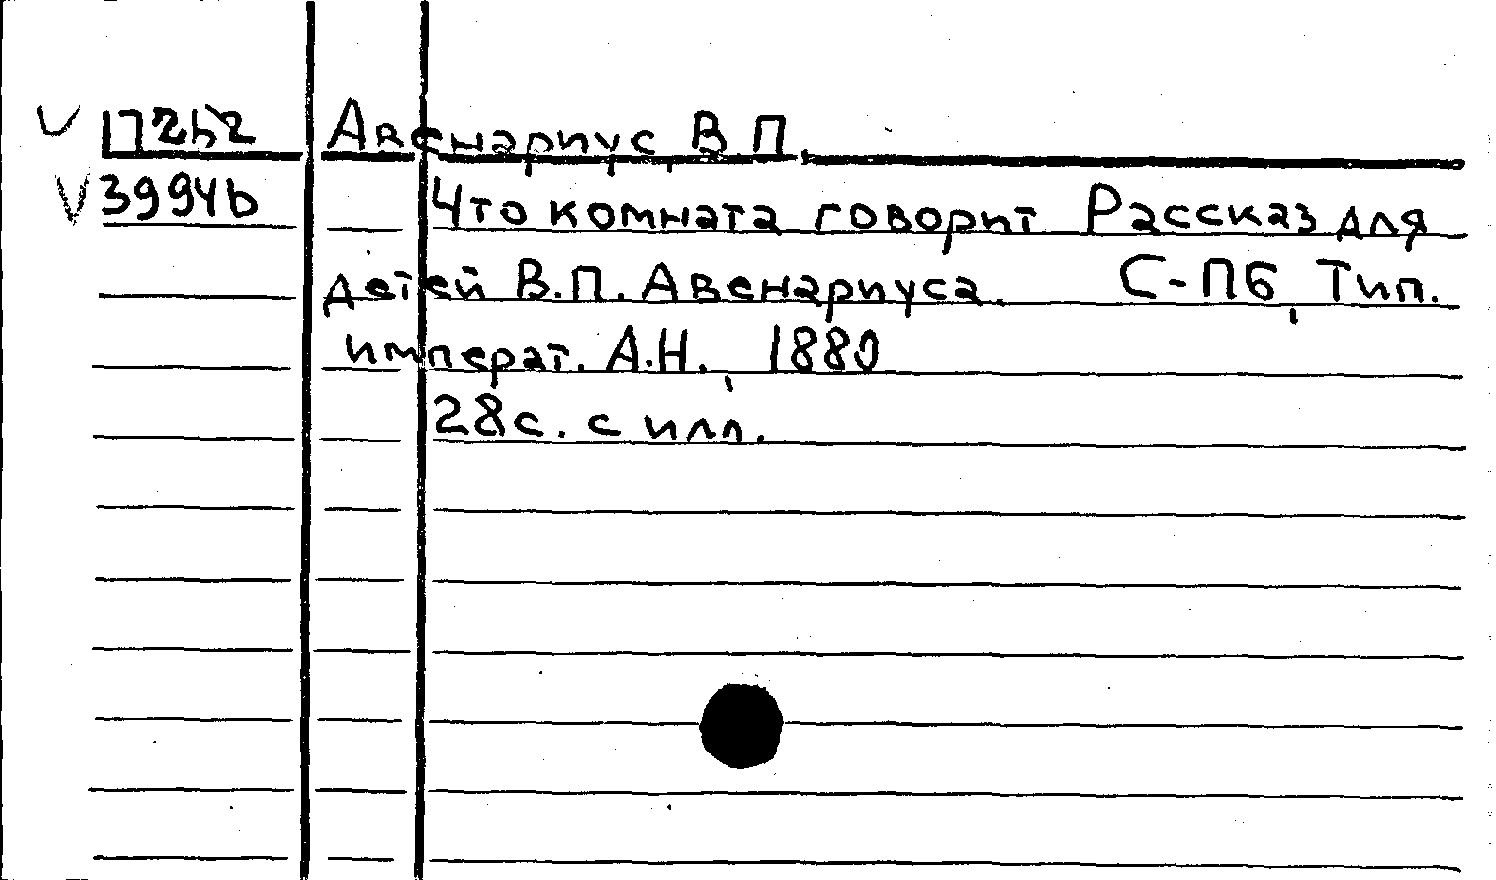 П262 Авенариус, В.П.
3994b Что комната говорит Рассказ для
детей В.П. Авенариуса. С-ПБ, Тип.
императ. А.Н., 1880
28с. с илл.